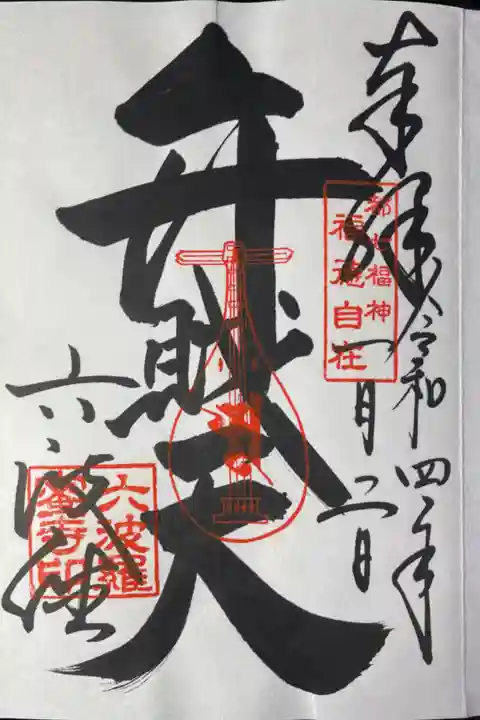 奉拝
令和四年
一月二日
都七福神
福徳自在
弁財天
六波羅
蜜寺印